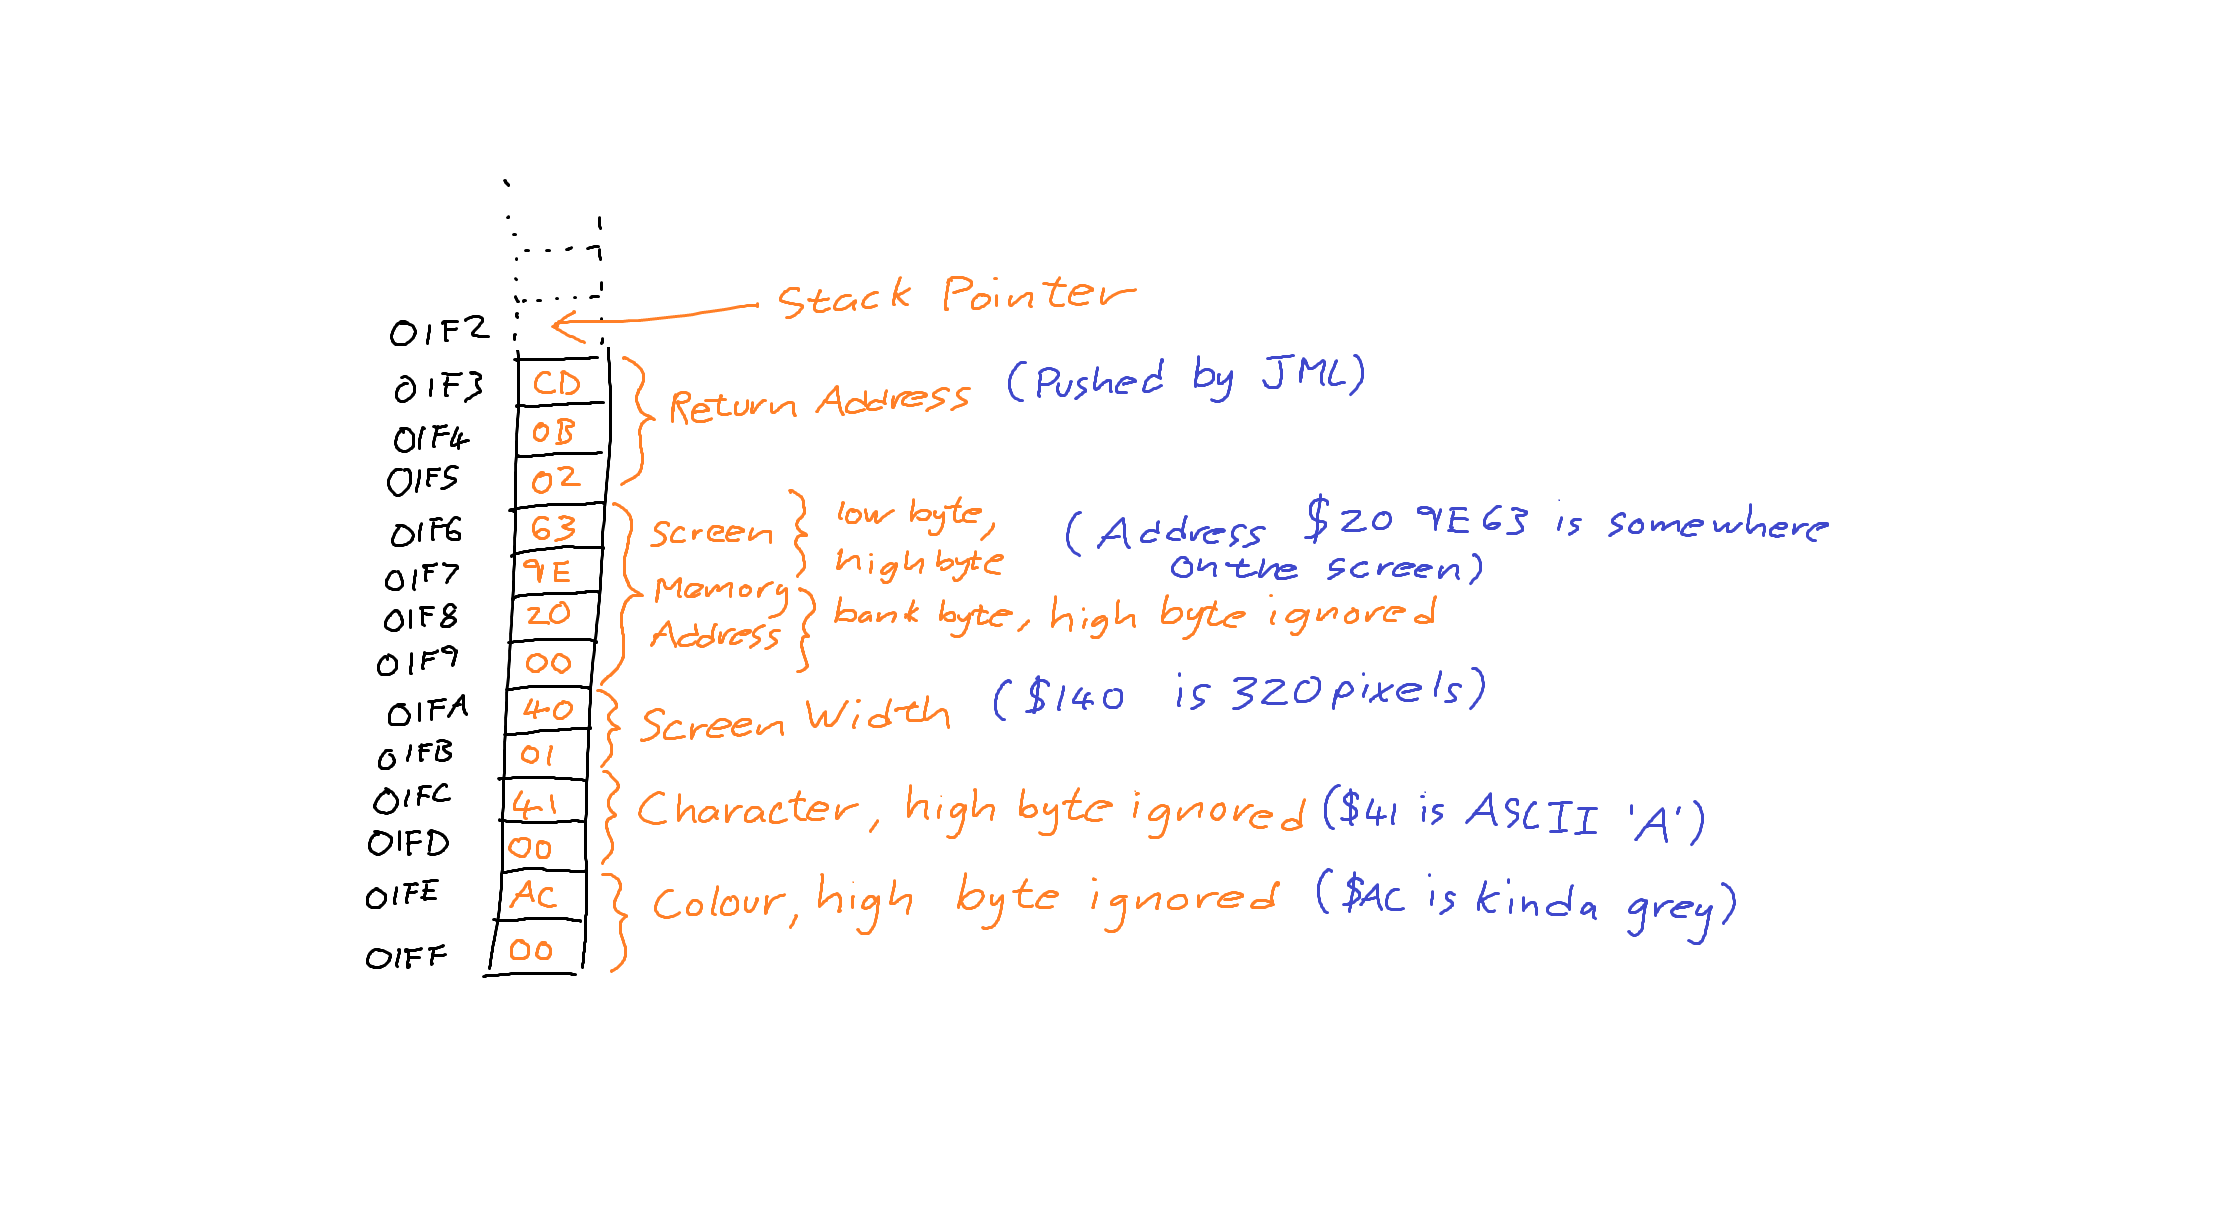 Stack Pointer
01F2
01F3 CD
Return Address (Pushed by JML)
01F4 0B
01F5 02
01F6 63
Screen low byte, (Address $20 9E63 is somewhere
high byte on the screen)
01F7 9E
Memory
01F8 20
bank byte, high byte ignored
Address
01F9 00
01FA 40
Screen Width ($140 is 320 pixels)
01FB 01
01FC 41
Character, high byte ignored ($41 is ASCII 'A')
01FD 00
01FE AC
Colour, high byte ignored ($AC is kinda grey)
01FF 00